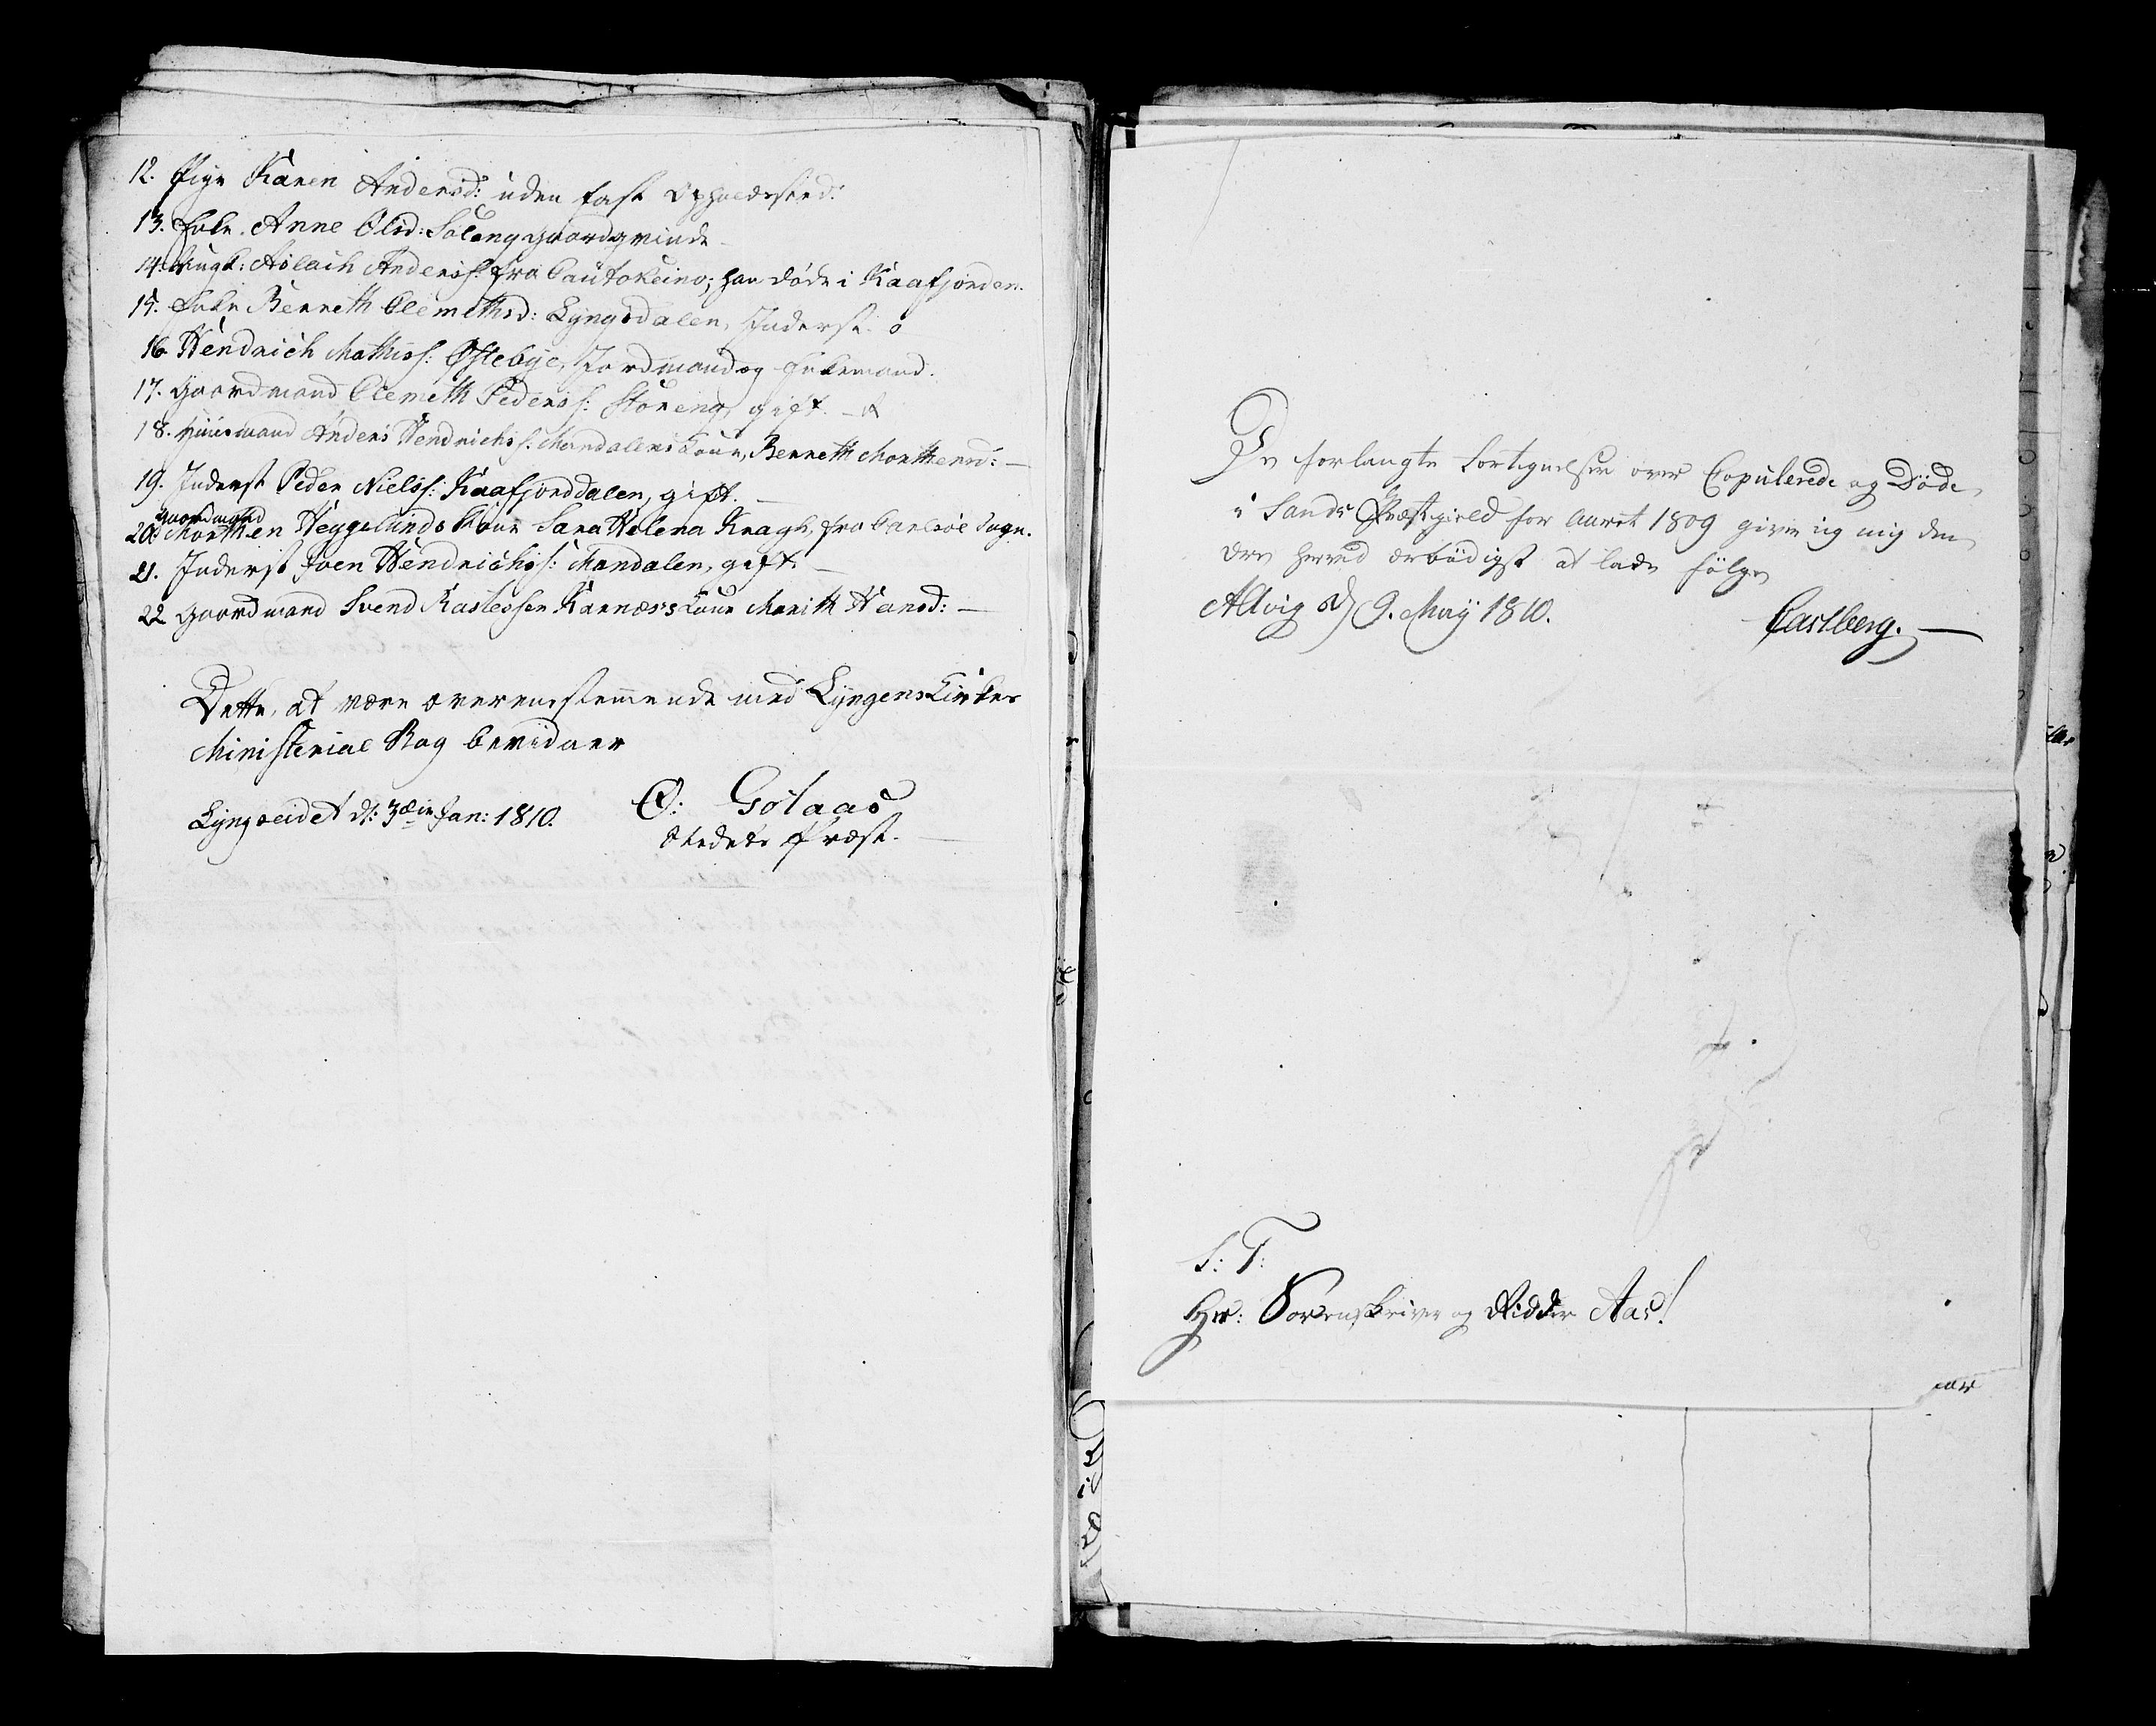 12. Pige Karen Andersd: uden fast Opholdssted.
13. Enke. Anne Olsd: Saleng Gaardqvinde
14. Ungk: Aslach Anderss: fra Cautokeino; han døde i Kaafjorden.
15. Enke Berreth Clemethsd: Lyngsdalen, Inderst.
16. Hendrich Mathiss: Østebye, Jordmand og Enkemand.
17. Gaardmand Clemeth Peders s: Storeng, gift. —
18. Huusmand Anders Hendrichs s: Mandalens Kone, Berreth Morthensd: —
19. Inderst Peder Nielss: Kaafjorddalen, gift. —
Gaardmand
20. Morthen Heggelunds Kone Sara Helena Kragh, fra Carlsöe Sogn.
21. Inderst Iven Hendrichss: Mandalen, gift. —
22 Gaardmand Svend Raslessen Karnæss Kone Marith Hansd: —
Dette, at være overensstemmende med Lyngens Kirkes
Ministerial Bog bevidner
Lyngseidet d: 3die Jan: 1810.
O: Gølaas
Stedets Præst. —
De forlangte Fortegnelser over Copulerede og Døde,
i Sands Præstegield for Aaret 1809 giver ieg mig den
Ære herved ærbødigst at lade følge
Altvig d 9. May 1810.
Carlberg. —
S: T:
Hr: Sorenskriver og Ridder Aas!